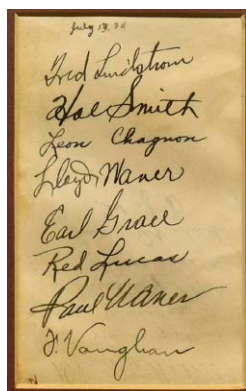 July 13, 34
Fred Lindstrom
Hal Smith
Leon Chagnon
Lloyd Waner
Earl Grace
Red Lucas
Paul Waner
F. Vaughan